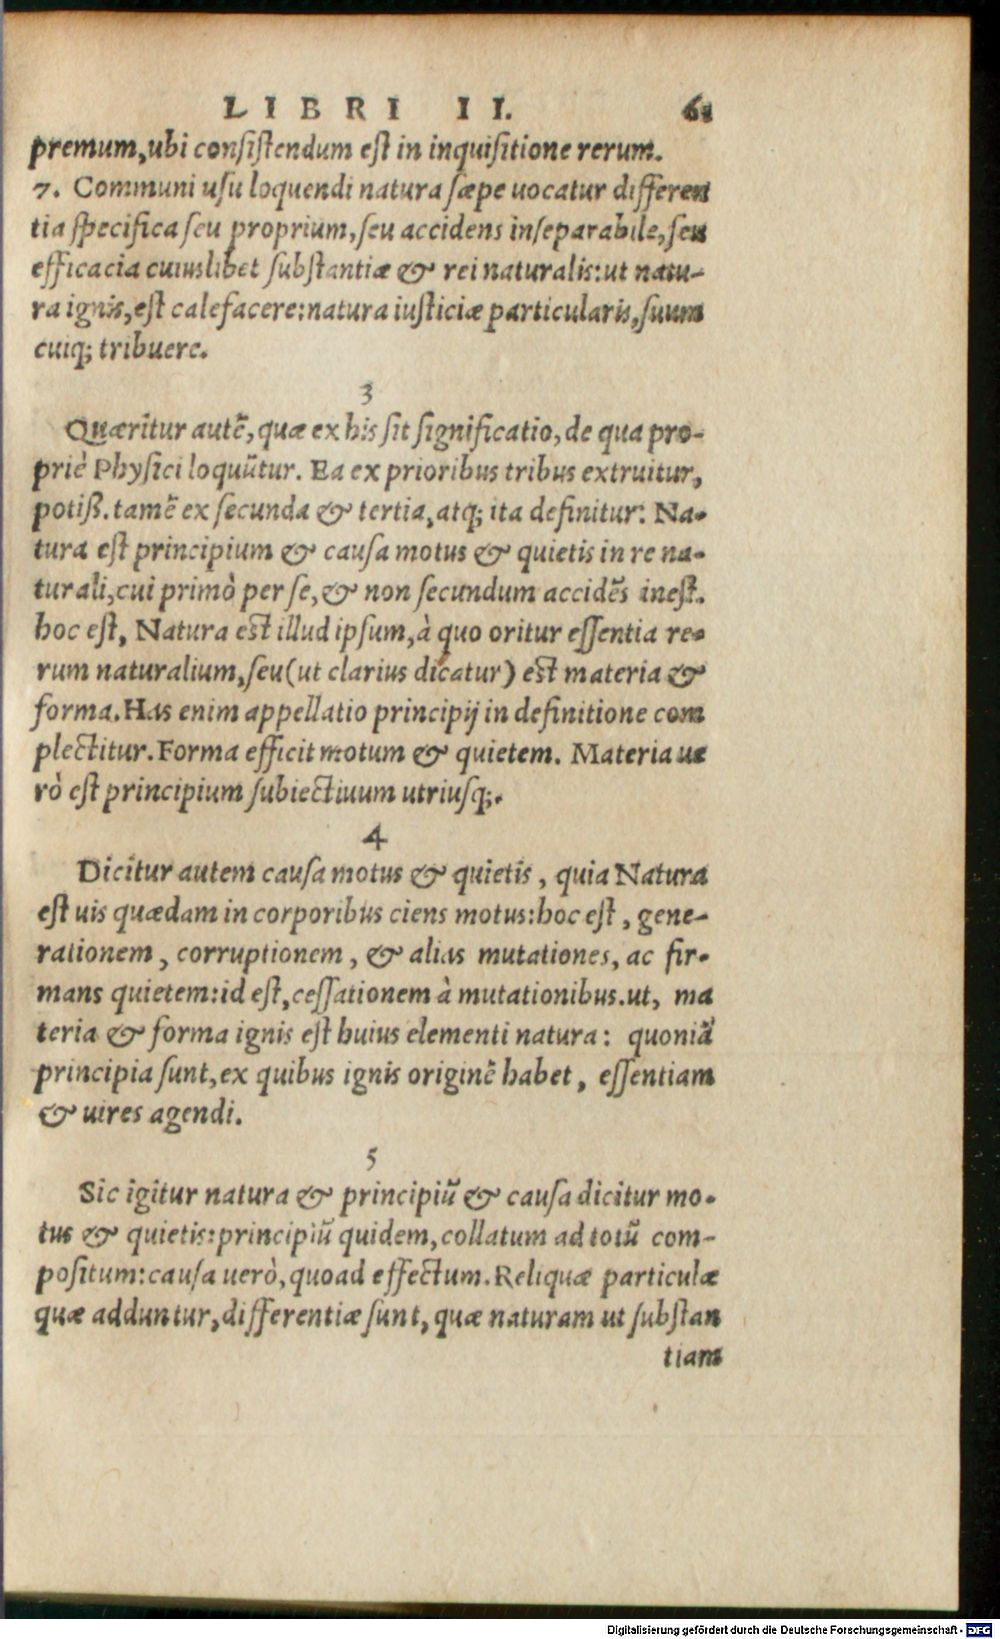 LIBRI II. 61
premum, ubi consistendum est in inquisitione rerum.
7. Communi usu loquendi natura sæpe uocatur differen
tia specifica seu proprium, seu accidens inseparabile, seu
efficacia cuiuslibet substantiæ & rei naturalis: ut natu-
ra ignis, est calefacere: natura iusticiæ particularis, suum
cuiq; tribuere.
3
Quæritur autē, quæ ex his sit significatio, de qua pro-
priè Physici loquūtur. Ea ex prioribus tribus extruitur,
potiß. tamē ex secunda & tertia, atq; ita definitur: Na-
tura est principium & causa motus & quietis in re na-
turali, cui primò per se, & non secundum accidēs inest.
hoc est, Natura est illud ipsum, à quo oritur essentia re-
rum naturalium, seu (ut clarius dicatur) est materia &
forma. Has enim appellatio principij in definitione com
plectitur. Forma efficit motum & quietem. Materia ue
rò est principium subiectiuum utriusq;.
4
Dicitur autem causa motus & quietis, quia Natura
est uis quædam in corporibus ciens motus: hoc est, gene-
rationem, corruptionem, & alias mutationes, ac fir-
mans quietem: id est, cessationem à mutationibus. ut, ma
teria & forma ignis est huius elementi natura: quoniā
principia sunt, ex quibus ignis originē habet, essentiam
& uires agendi.
5
Sic igitur natura & principiū & causa dicitur mo-
tus & quietis: principiū quidem, collatum ad totū com-
positum: causa uerò, quoad effectum. Reliquæ particulæ
quæ adduntur, differentiæ sunt, quæ naturam ut substan
tiam
Digitalisierung gefördert durch die Deutsche Forschungsgemeinschaft - DFG